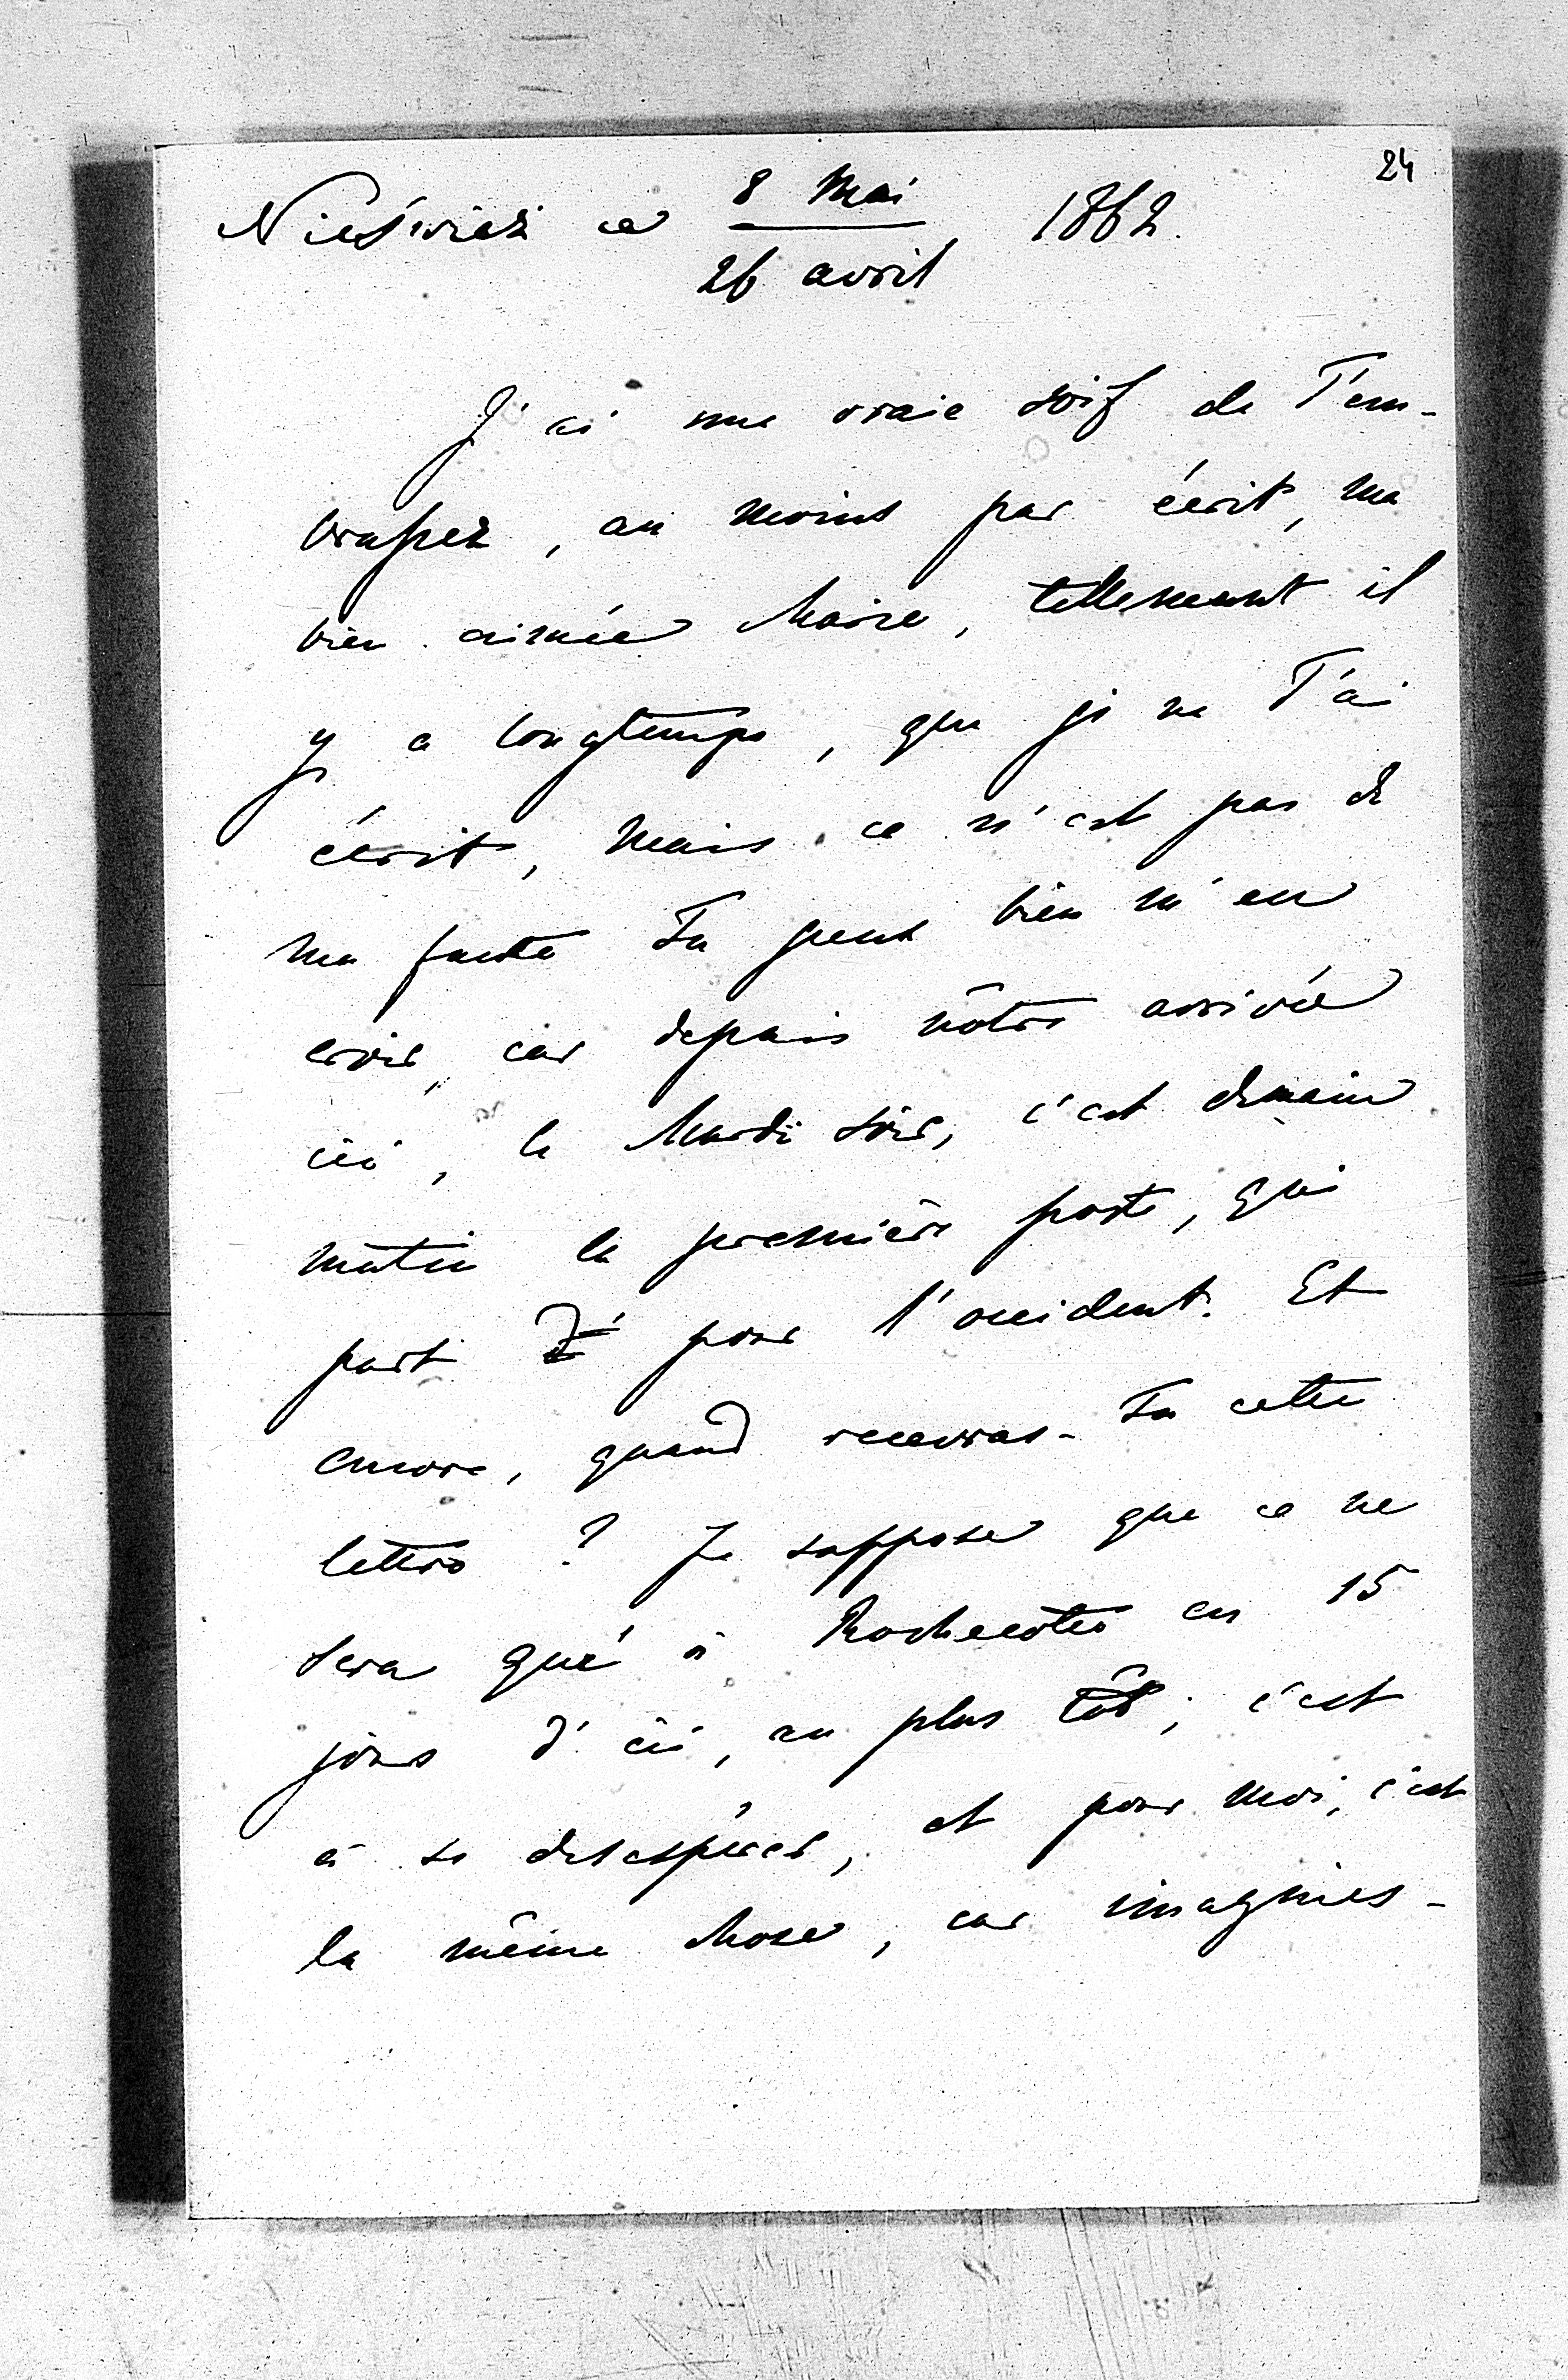 24
Nieśwież ce 8 Mai / 26 avril 1862.
J'ai une vraie soif de T'em-
brasser, au moins par écrit, ma
bien aimée Marie, tellement il
y a longtemps, que je ne T'ai
écrit, mais ce n'est pas de
ma faute Tu peux bien m'en
croire, car depuis nôtre arrivée
ici, le Mardi soir, c'est demain
matin la première poste, qui
part d' pour l'occident. Et
encore, quand recevras-Tu cette
lettre ? Je suppose que ce ne
sera qué à Rochecotte en 15
jours d'ici, au plus tôt; c'est
à se désespérer, et pour moi, c'est
la même chose, car imagines-